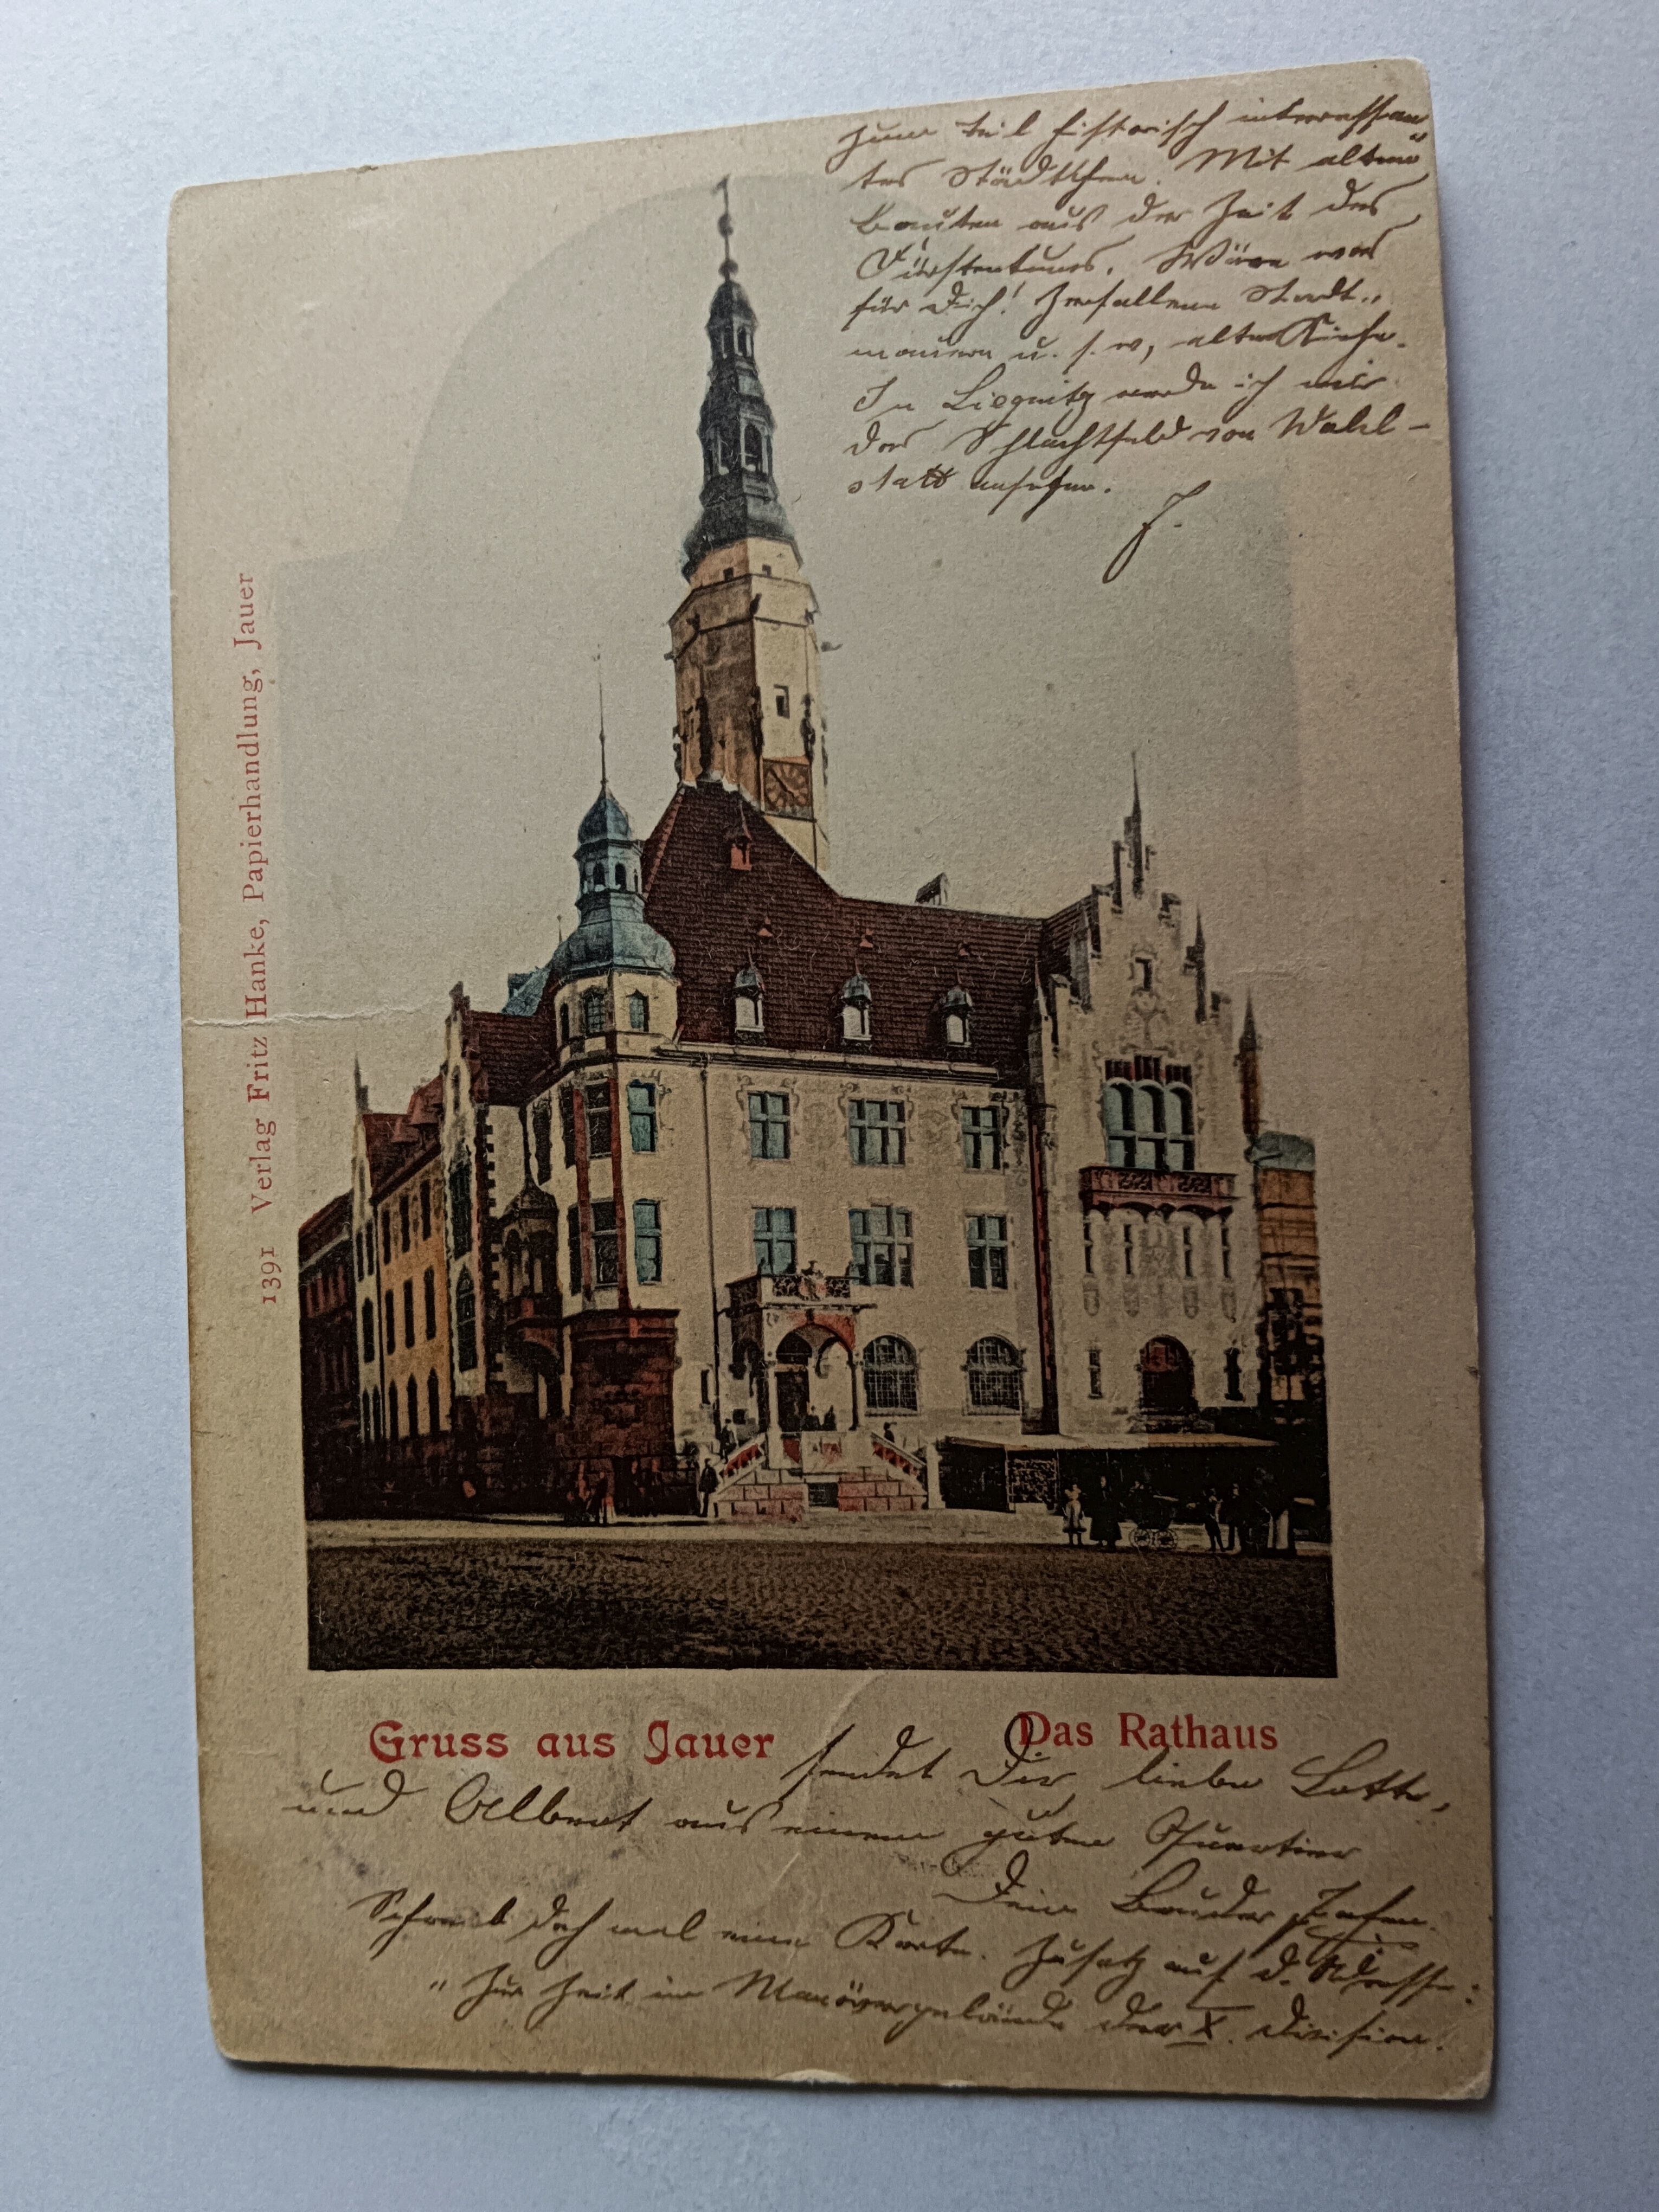 zum teil historisch interessan-
tes Städtchen. Mit alten
Bauten aus der Zeit des
Fürstentumes. Wäre was
für Dich! Zerfallene Stadt-
mauern u. s. w, alte Kirche.
In Liegnitz werde ich mir
das Schlachtfeld von Wahl-
statt ansehen.
J.
1391 Verlag Fritz Hanke, Papierhandlung, Jauer
Gruss aus Jauer
Das Rathaus
sendet Dir liebe Lotte,
und Albert aus einem guten Quartier
Dein Bruder
Schreib doch mal eine Karte. Zusatz auf d. Adresse:
"Zur Zeit im Manövergelände der X. Division.